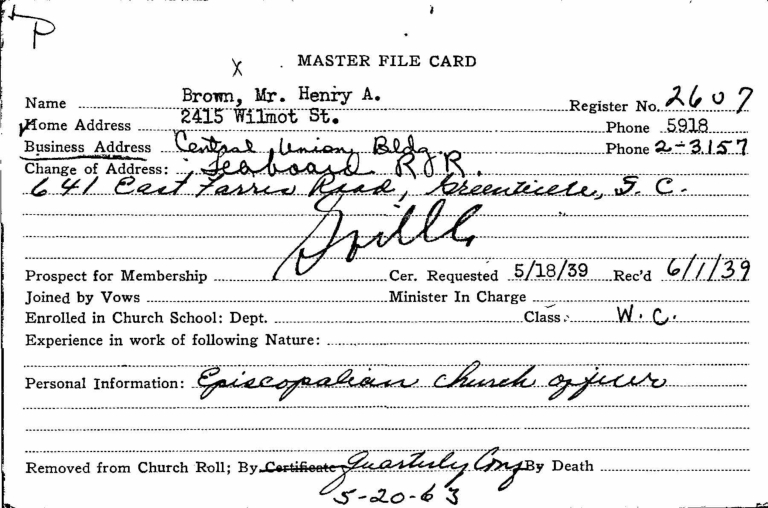 P
X MASTER FILE CARD
Name Brown, Mr. Henry A. Register No. 2607
Home Address 2415 Wilmot St. Phone 5918
Business Address Central Union Bldg. Phone 2-3157
Change of Address: Seaboard R.R.
641 East Farris Road, Greenville, S. C.
Prospect for Membership Cer. Requested 5/18/39 Rec'd 6/1/39
Joined by Vows Minister In Charge
Enrolled in Church School: Dept. Class: W. C.
Experience in work of following Nature:
Personal Information: Episcopalian church officer
Removed from Church Roll; By Certificate Quarterly Conf By Death
5-20-63